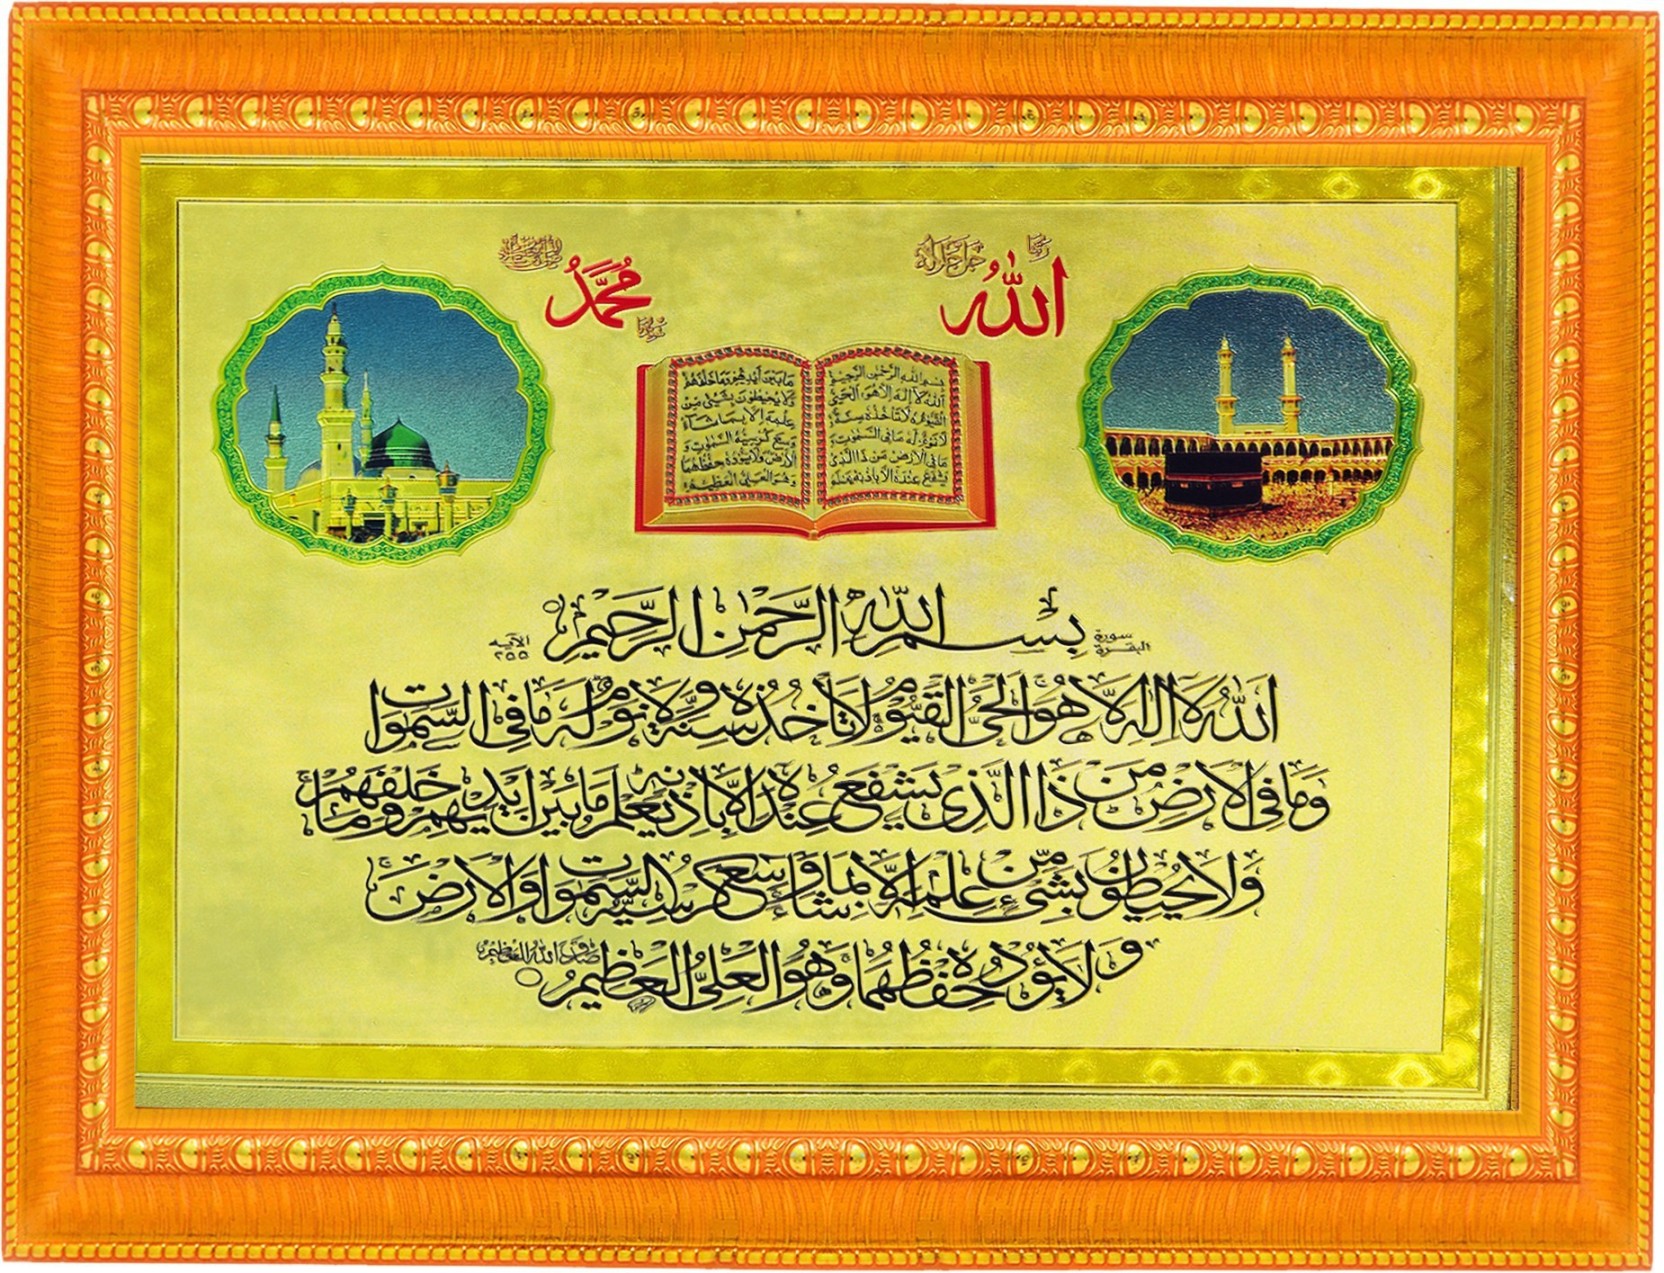 ربنا
جل جلاله
الله
مُحَمَّدٌ
بسم الله الرحمن الرحيم
الله لا اله الا هو الحي
القيوم لا تاخذه سنة
ولا نوم له ما في السموت و
ما في الارض من ذا الذي
يشفع عنده الا باذنه يعلم
ما بين ايديهم وما خلفهم
ولا يحيطون بشيء من
علمه الا بما شاء
وسع كرسيه السموت و
الارض ولا يؤده حفظهما
وهو العلي العظيم
سورة البقرة
بِسْمِ اللهِ الرَّحْمٰنِ الرَّحِيْمِ
الآية ٢٥٥
اَللهُ لَا اِلٰهَ اِلَّا هُوَ الْحَيُّ الْقَيُّوْمُ لَا تَأْخُذُهٗ سِنَةٌ وَّلَا نَوْمٌ لَهٗ مَا فِي السَّمٰوٰتِ
وَمَا فِي الْاَرْضِ مَنْ ذَا الَّذِيْ يَشْفَعُ عِنْدَهٗ اِلَّا بِاِذْنِهٖ يَعْلَمُ مَا بَيْنَ اَيْدِيْهِمْ وَمَا خَلْفَهُمْ
وَلَا يُحِيْطُوْنَ بِشَيْءٍ مِّنْ عِلْمِهٖ اِلَّا بِمَا شَاءَ وَسِعَ كُرْسِيُّهُ السَّمٰوٰتِ وَالْاَرْضَ
وَلَا يَؤُدُهٗ حِفْظُهُمَا وَهُوَ الْعَلِيُّ الْعَظِيْمُ
صدق الله العظيم